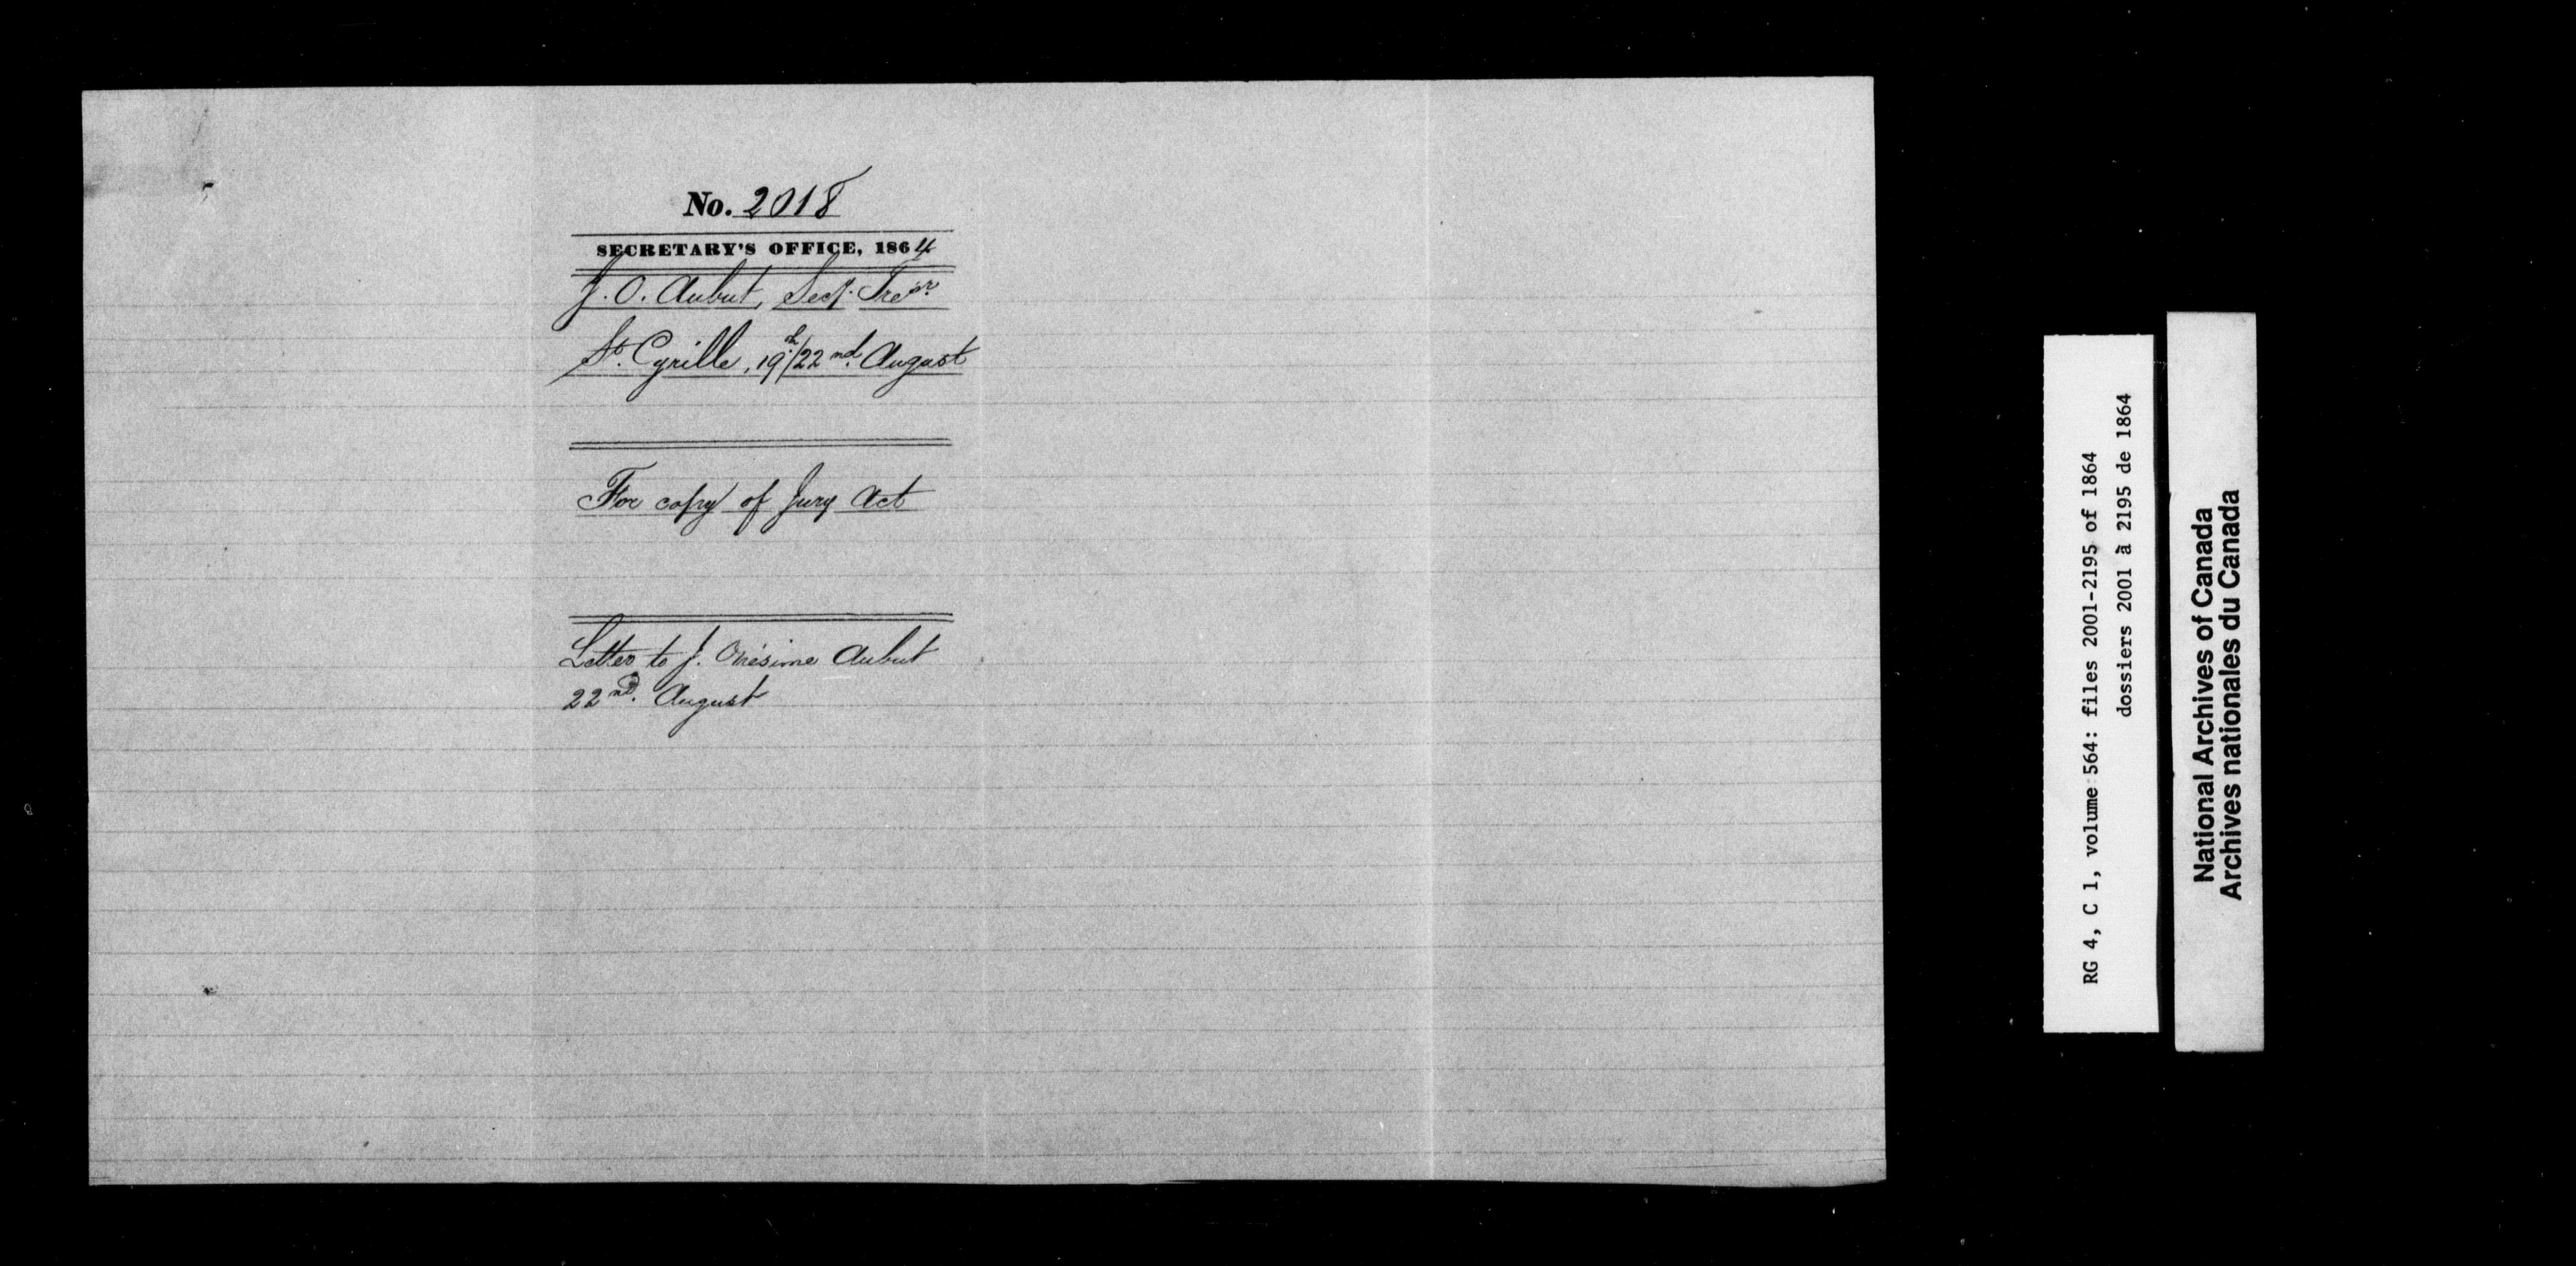 No. 2018
SECRETARY'S OFFICE, 1864
J. O. Aubut, Secy. Tresr.
St. Cyrille, 19th/22nd August
For copy of Jury Act
Letter to J. Onésime Aubut
22nd. August
RG 4, C 1, volume 564: files 2001-2195 of 1864
dossiers 2001 à 2195 de 1864
National Archives of Canada
Archives nationales du Canada